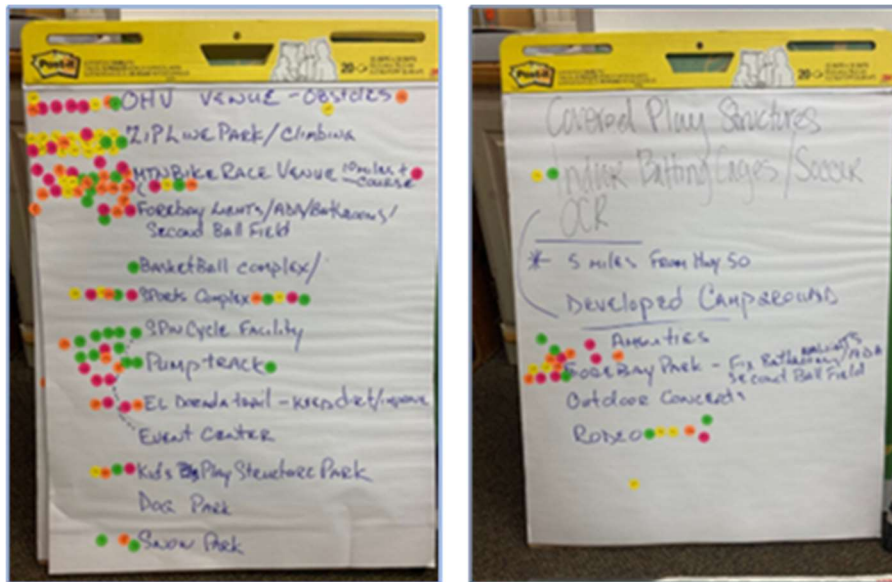 Post-it
20
OHV VENUE - Obstcles
ZIPLINE PARK/Climbing
MTN Bike RACE VENUE 10 miles +
COURSE
FOREBAY Lights/ADA/BathRooms/
Second Ball Field
BasketBall complex/
SPorts Complex
Cycle Facility
PUMP TRACK
EL Dorado trail - Keep dirt/improve
EVENT CENTER
Kid's Play Structure PARK
DOG PARK
SNOW PARK
Post-it
20
Covered Play Structures
Indoor Batting Cages/Soccer
OCR
* 5 miles From Hwy 50
Developed CAMPGROUND
Amenities
FOREBAY PARK - Fix Bathrooms/ADA
Second Ball Field
Outdoor Concerts
RODEO